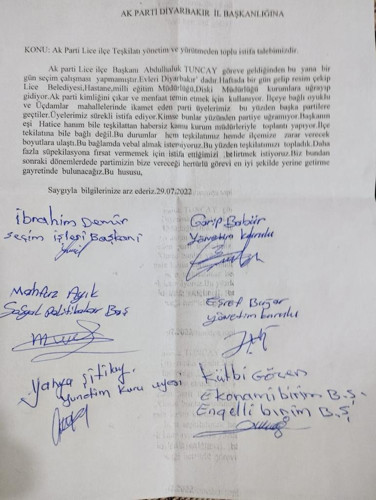 AK PARTİ DİYARBAKIR İL BAŞKANLIĞINA
KONU: Ak Parti Lice ilçe Teşkilatı yönetim ve yürütmeden toplu istifa talebimizdir.
Ak parti Lice ilçe Başkanı Abdulladuk TUNCAY göreve geldiğinden bu yana bir
gün seçim çalışması yapmamıştır.Evleri Diyarbakır' dadır.Haftada bir gün gelip resim çekip
Lice Belediyesi,Hastane,milli eğitim Müdürlüğü,Diski Müdürlüğü kurumlara uğrayıp
gidiyor.Ak parti kimliğini çıkar ve menfaat temin etmek için kullanıyor. İlçeye bağlı uyuklu
ve Üçdamlar mahallelerinde ikamet eden parti üyelerimiz bu yüzden başka partilere
geçtiler.Üyelerimiz sürekli istifa ediyor.Kimse bunlar yüzünden partiye uğramıyor.Başkanın
eşi Hatice hanım bile teşkilattan habersiz kamu kurum müdürleriyle toplantı yapıyor.İlçe
tekilatına bile bağlı değil.Bu durumlar hem teşkilatımız hemde ilçemize zarar verecek
boyutlara ulaştı.Bu bağlamda vebal almak istemiyoruz.Bu yüzden teşkilatımızı topladık.Daha
fazla süpekilasyona fırsat vermemek için istifa ettiğimizi belirtmek istiyoruz.Biz bundan
sonraki dönemlerdede partimizin bize vereceği hertürlü görevi en iyi şekilde yerine getirme
gayretinde bulunacağız.Bu hususu,
Saygıyla bilgilerinize arz ederiz.29.07.2022
İbrahim Demir
Seçim işleri Başkanı
Garip Babür
Yönetim kurulu
Mahfuz Ayık
Sosyal politikalar Baş
Eşref Buğar
yönetim kurulu
Yahya
yunetim kuru uyesi
Kütbi Göçen
Ekonomi birim B.Ş.
Engelli birim B.Ş